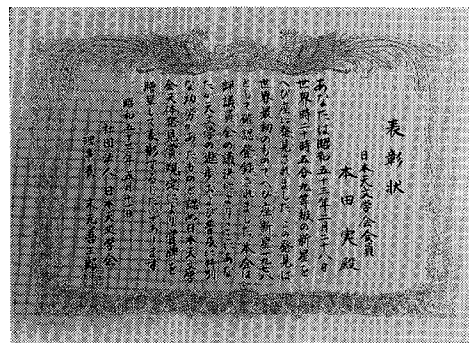 表彰状
日本天文学会会員
本田実殿
あなたは昭和五十三年二月二十八日
世界時二十時五分九等級の新星を
へび座に発見されました この発見は
世界最初のものでへび座新星一九七八
として確認登録されました 本会は
評議員会の議決によりここにあな
たの天文学の進歩および普及に特別
な功労があったものと認め日本天文学
会天体発見賞規定により賞牌を
贈呈して表彰するしだいであります
昭和五十三年五月十一日
社団法人日本天文学会
理事長 末元善三郎